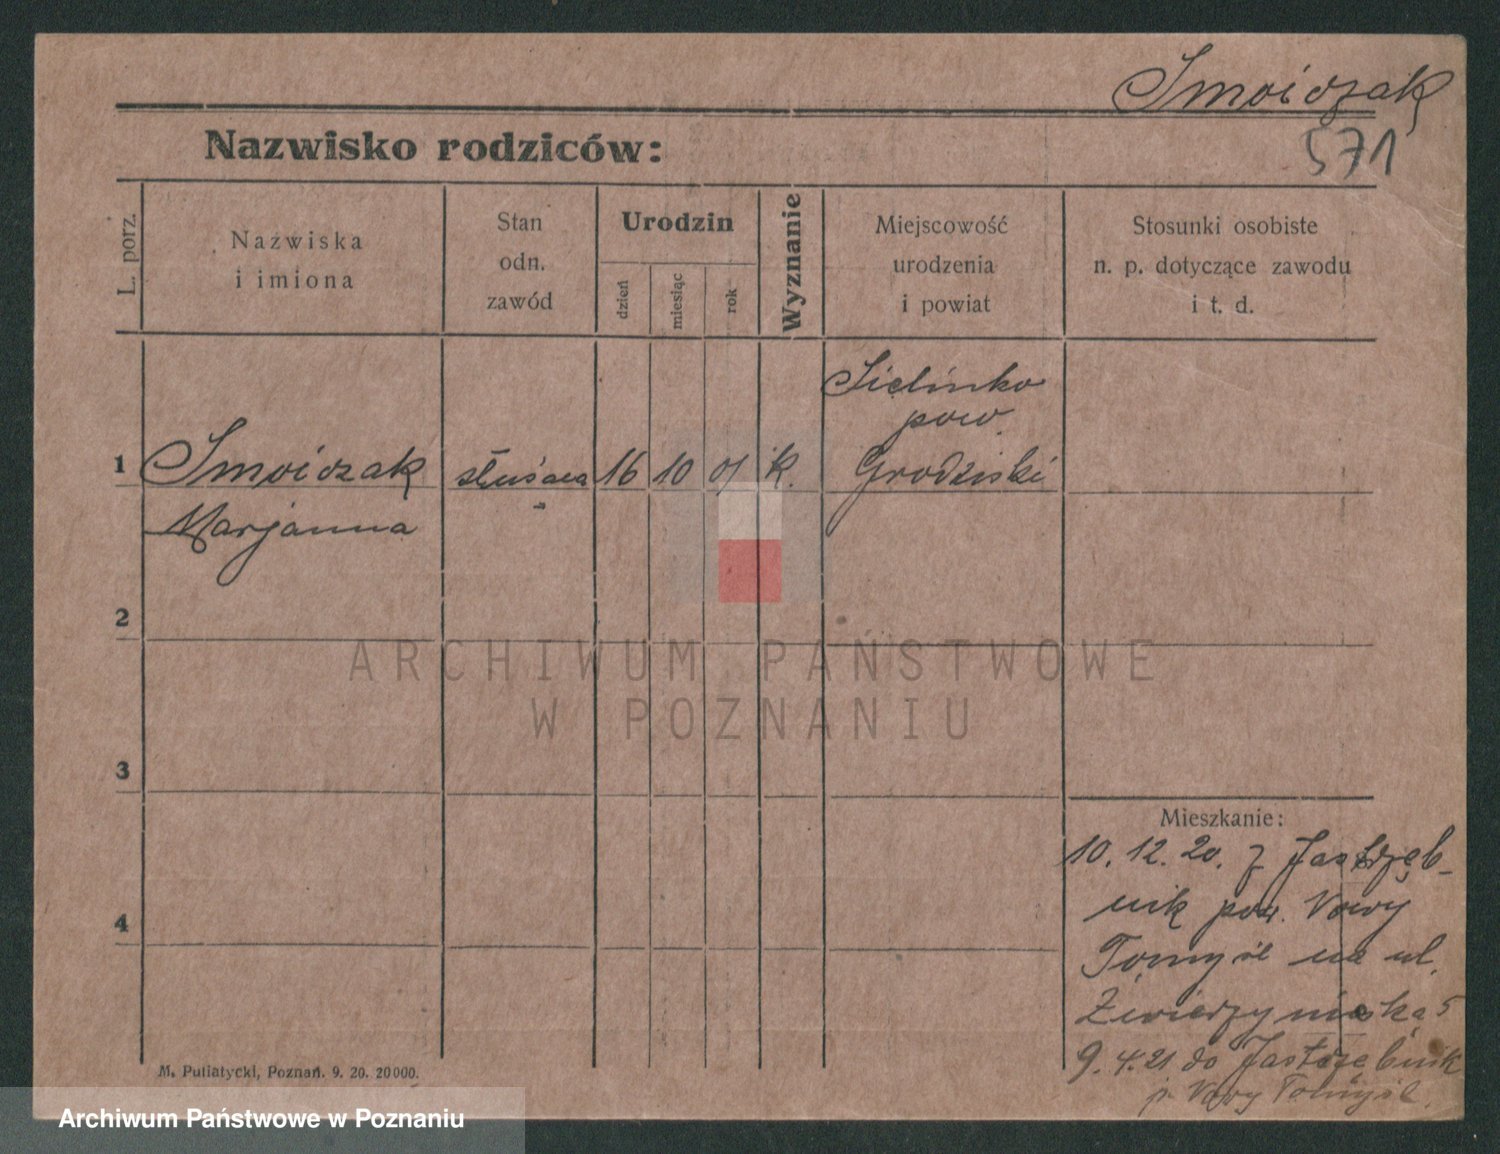 Smoiczak
571
Nazwisko rodziców:
L. porz.
Nazwiska
i imiona
Stan
odn.
zawód
Urodzin
dzień
miesiąc
rok
Wyznanie
Miejscowość
urodzenia
i powiat
Stosunki osobiste
n. p. dotyczące zawodu
i t. d.
Sielinko
pow.
1 Smoiczak służąca 16 10 01 k. Grodziski
Marjanna
2
3
4
Mieszkanie:
10.12.20. z Jastrzęb-
nik pow. Nowy
Tomyśl na ul.
Zwierzyniecką 5
9.4.21 do Jastrzębnik
p. Nowy Tomyśl.
M. Putiatycki, Poznań. 9. 20. 20000.
ARCHIWUM PAŃSTWOWE
W POZNANIU
Archiwum Państwowe w Poznaniu